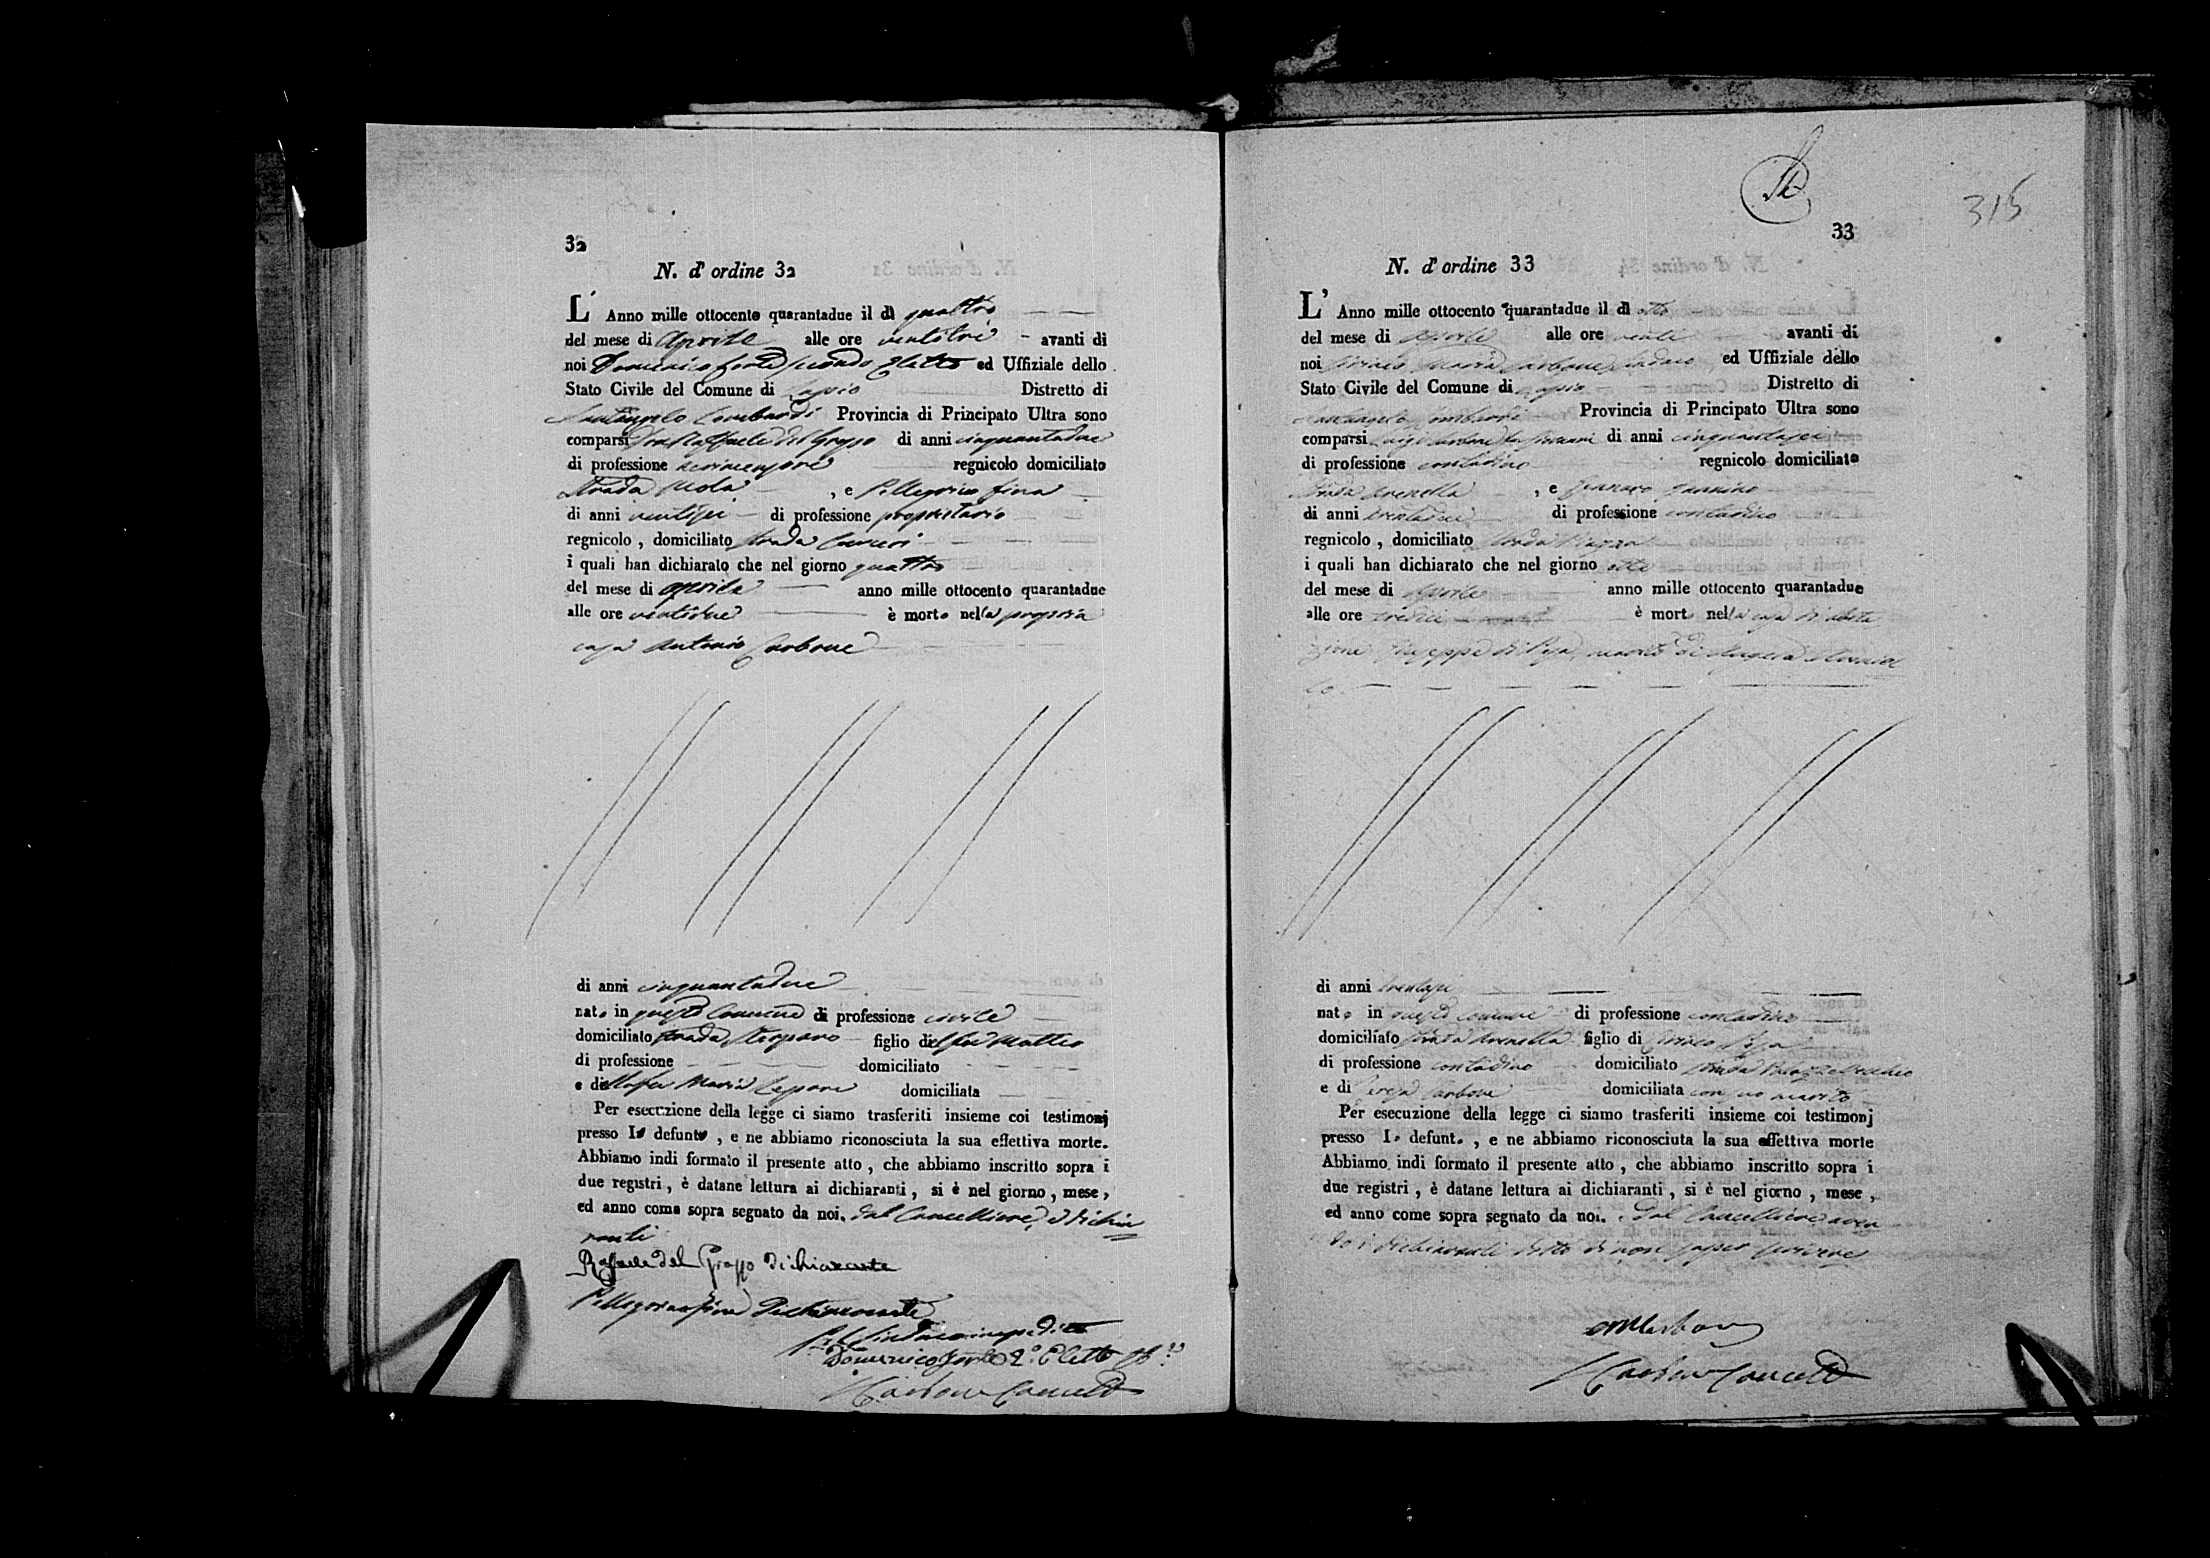 32
N. d' ordine 32
L' Anno mille ottocento quarantadue il dì quattro
del mese di Aprile alle ore ventitrè avanti di
noi Domenico Forte secondo Eletto ed Uffiziale dello
Stato Civile del Comune di Lapio Distretto di
Santangelo Lombardi Provincia di Principato Ultra sono
comparsi Raffaele del Grosso di anni cinquantadue
di professione regnicolo domiciliato
Strada , e Pellegrino Fina
di anni ventisei di professione proprietario
regnicolo , domiciliato strada
i quali han dichiarato che nel giorno quattro
del mese di aprile anno mille ottocento quarantadue
alle ore ventidue è morto nella propria
casa Antonio Carbone
di anni cinquantadue
nato in questo Comune di professione civile
domiciliato strada figlio del fu Matteo
di professione domiciliato
e di Maria Lepore domiciliata
Per esecuzione della legge ci siamo trasferiti insieme coi testimonj
presso lo defunto , e ne abbiamo riconosciuta la sua effettiva morte.
Abbiamo indi formato il presente atto , che abbiamo inscritto sopra i
due registri , è datane lettura ai dichiaranti , si è nel giorno , mese ,
ed anno come sopra segnato da noi. dal Cancelliere, e dichia
ranti
Raffaele del Grosso dichiarante
Pellegrino Fina Dichiarante
Pel Sindaco impedito
Domenico Forte 2º Eletto
Carbone Cancell
315
33
N. d' ordine 33
L' Anno mille ottocento quarantadue il dì otto
del mese di Aprile alle ore venti avanti di
noi Maria Carbone Sindaco ed Uffiziale dello
Stato Civile del Comune di Lapio Distretto di
Santangelo Lombardi Provincia di Principato Ultra sono
comparsi Luigi Carbone fu Giovanni di anni cinquantasei
di professione contadino regnicolo domiciliato
strada Arenella , e Gennaro
di anni di professione contadino
regnicolo , domiciliato strada Piazza
i quali han dichiarato che nel giorno otto
del mese di Aprile anno mille ottocento quarantadue
alle ore tredici è morto nella casa di abita
zione Giuseppe di marito di Angela
lo
di anni trentasei
nato in questo Comune di professione contadino
domiciliato strada Arenella figlio di Ciriaco
di professione contadino domiciliato strada
e di Teresa Carbone domiciliata con suo marito
Per esecuzione della legge ci siamo trasferiti insieme coi testimonj
presso lo defunto , e ne abbiamo riconosciuta la sua effettiva morte
Abbiamo indi formato il presente atto , che abbiamo inscritto sopra i
due registri , è datane lettura ai dichiaranti , si è nel giorno , mese ,
ed anno come sopra segnato da noi. e dal Cancelliere aven
do i dichiaranti detto di non saper scrivere
Carbone Cancell